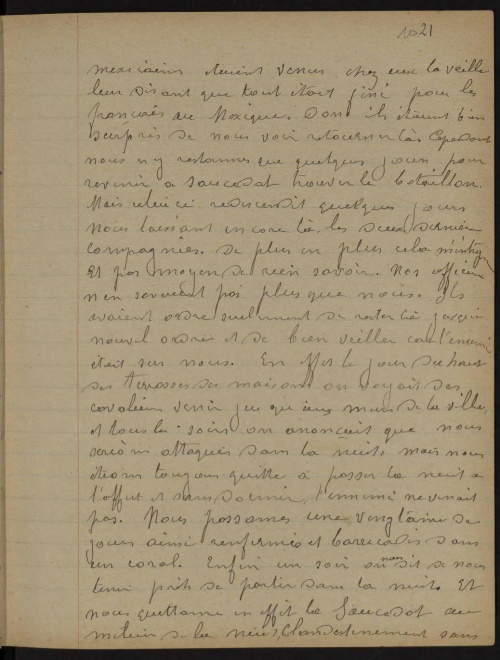 1021
mexicains étaient venus chez eux la veille
leur disant que tout était fini pour les
francais au Mexique. Donc ils étaient bien
surpris de nous voir retourner là. Cependant
nous n'y restames que quelques jours pour
revenir a Saucedat trouver le bataillon.
Mais celui ci redescendit quelques jours
nous laissant encore là, les deux dernières
compagnies. De plus en plus cela m'intrigue
Et pas moyen de rien savoir. Nos officiers
n'en savaient pas plus que nous. Ils
avaient ordre seulement de rester là jusqu'a
nouvel ordre et de bien veiller car l'ennemi
était sur nous. En effet le jour du haut
des terrasses des maisons on voyait des
cavaliers venir jusque aux murs de la ville,
et tous les soirs on anonçait que nous
serions attaqués dans la nuit, mais nous
étions toujours quitte a passer la nuit a
l'affut et sans dormir, l'ennemi ne venait
pas. Nous passames une vingtaine de
jours ainsi renfermés et barricadés dans
un coral. Enfin un soir on nous dit de nous
tenir prêts de partir dans la nuit. Et
nous quittame en effet la Saucedat au
milieu de la nuit, clandestinement sans